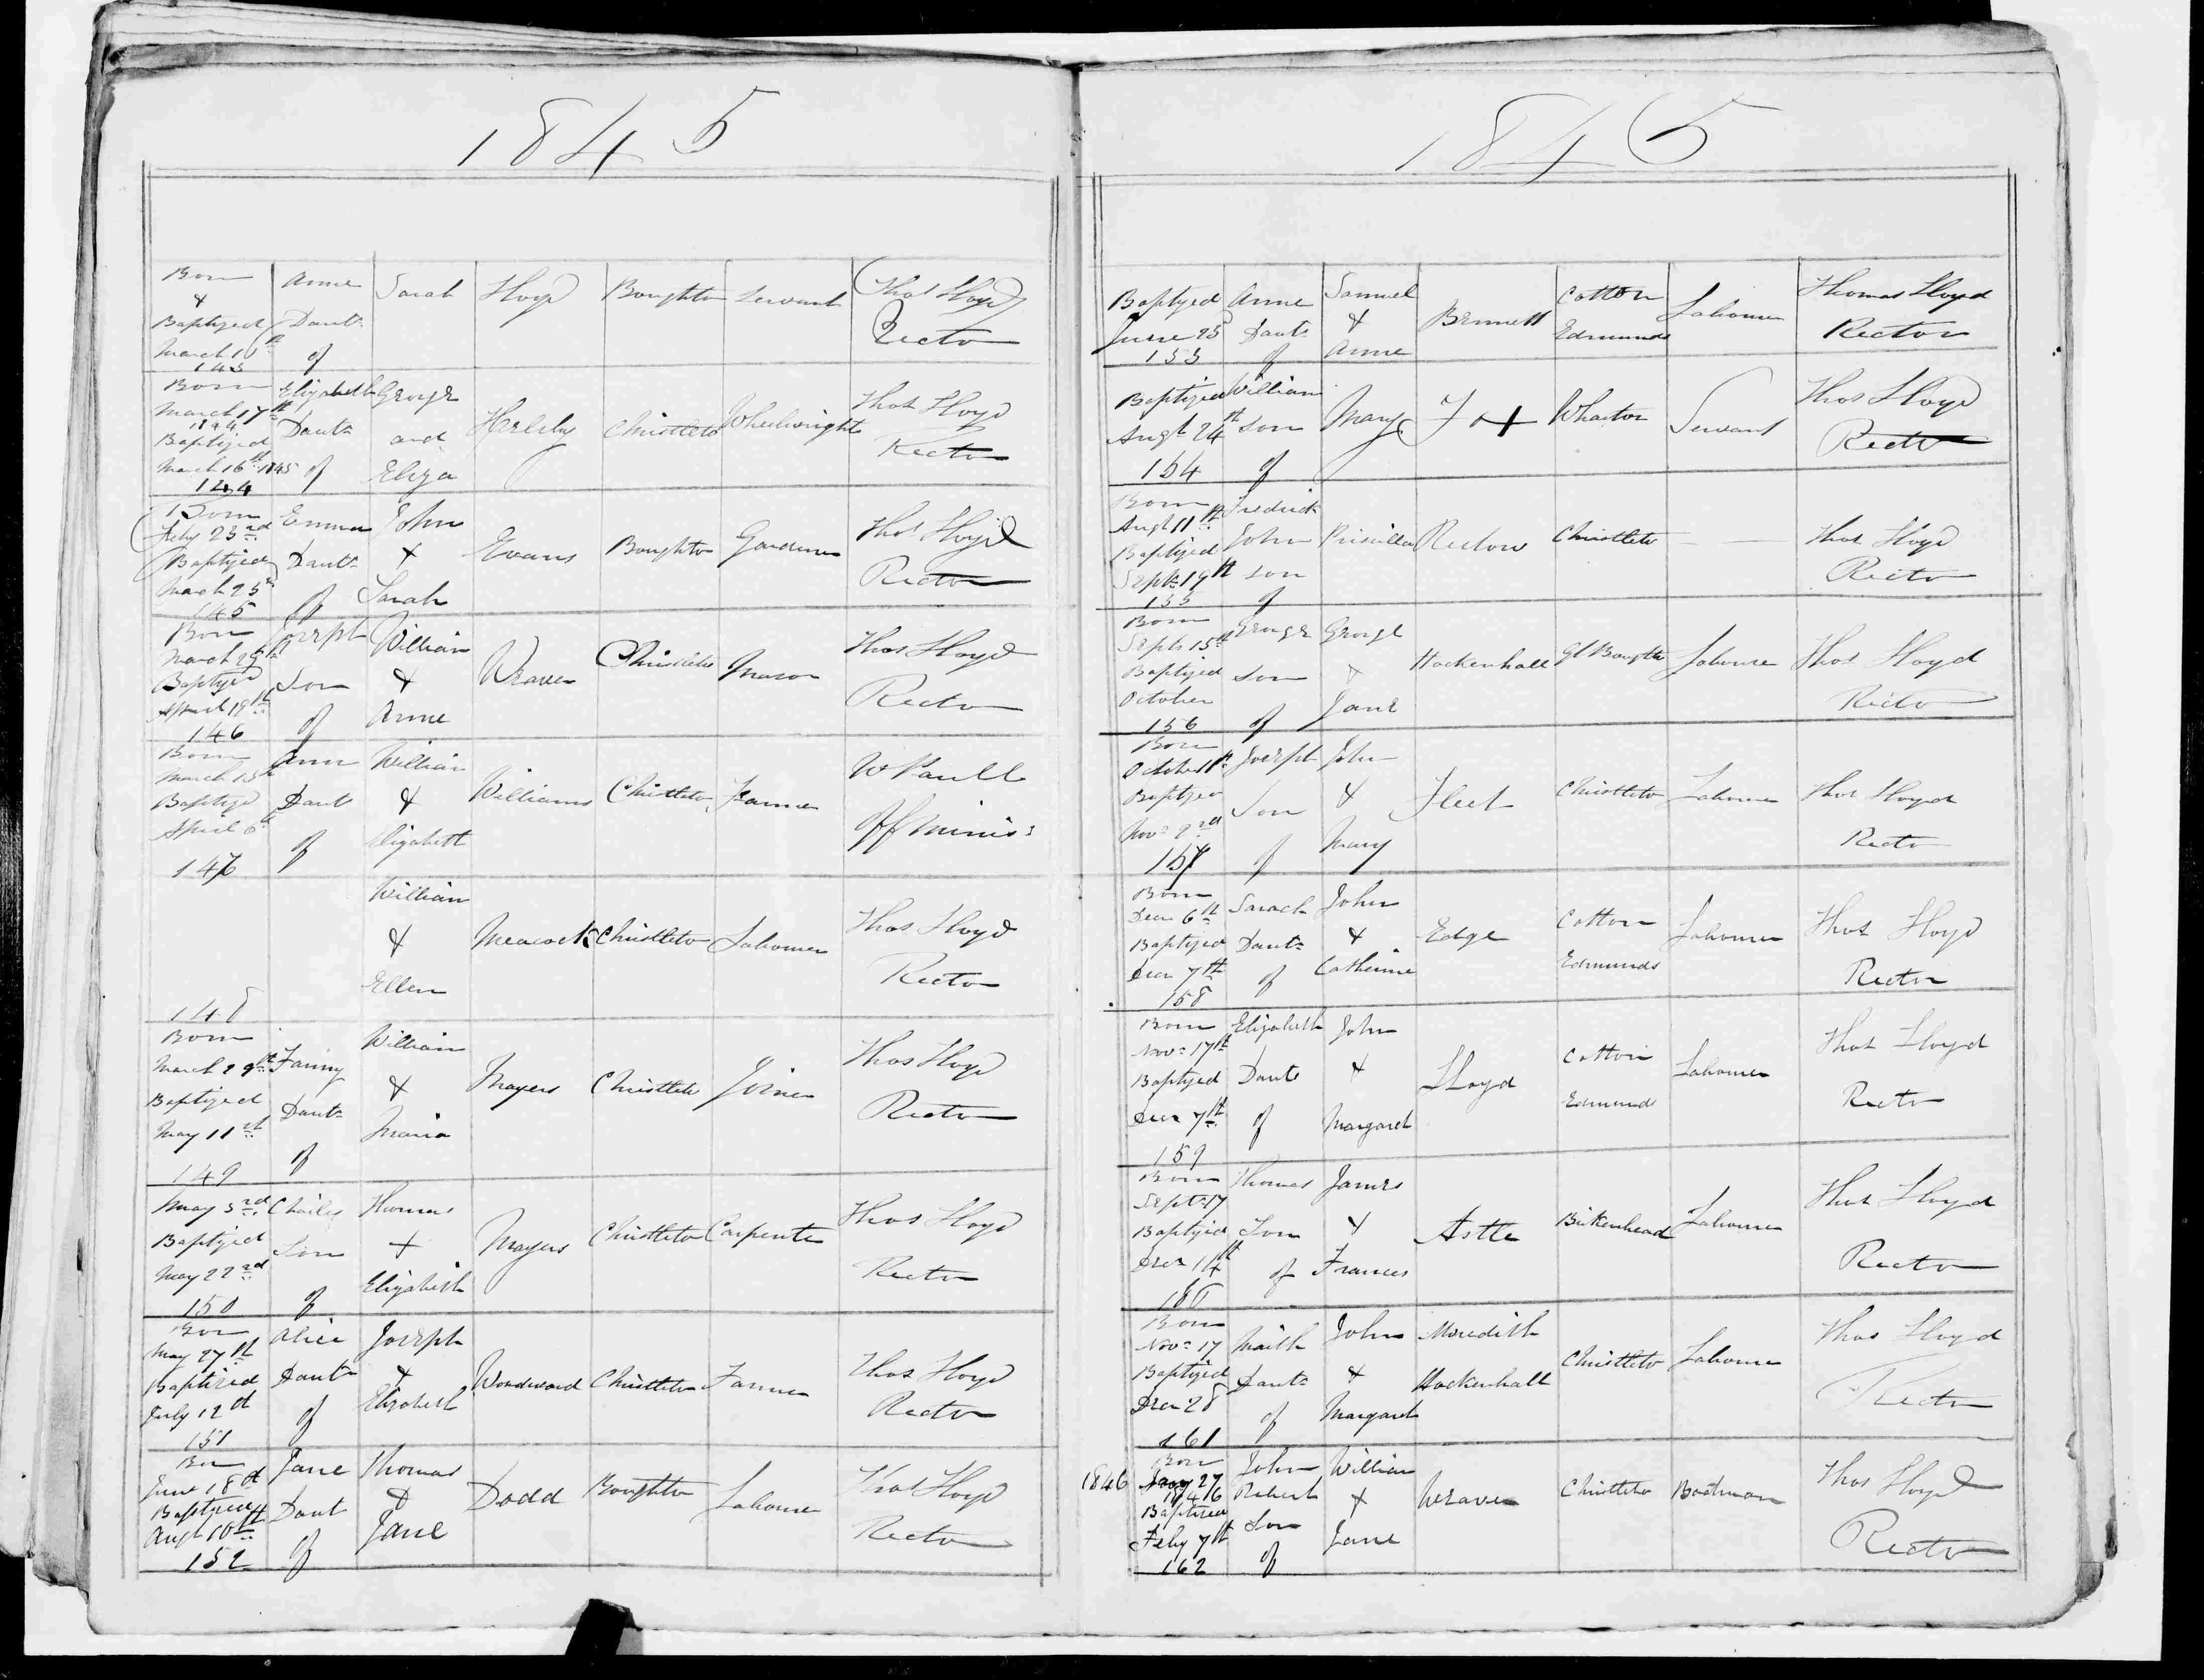 1845
Born Anne Sarah Lloyd Boughton Servant Thos Lloyd
&
Baptized Daut. Rector
March 10th of
143
Born Elizabeth George
March 17th Helsby Christleton Wheelwright Thos Lloyd
1844
Baptized Daut. and Rector
March 16th 1845 of Eliza
144
Born Emma John
Feby 23rd Evans Boughton Gardener Thos Lloyd
Baptized Daut. & Rector
March 25th of Sarah
145
Born Joseph William
March 29th Weaver Christleton Mason Thos Lloyd
Baptized Son & Rector
April 19th of Anne
146
Born Ann William W Paull
March 15th Williams Christleton Farmer
Baptized Daut &
April 6th of Elizabeth Off Minis:
147
William
& Meacock Christleton Labourer Thos Lloyd
Ellen Rector
148
Born William
March 29th Fanny & Mayers Christleton Joiner Thos Lloyd
Baptized Daut. Rector
May 11th of Maria
149
May 3rd Charles Thomas Thos Lloyd
Baptized Son + Mayers Christleton Carpenter
May 22nd of Elizabeth Rector
150
Born Alice Joseph
May 27th
Baptized Daut. & Woodward Christleton Farmer Thos Lloyd
July 12d of Elizabeth Rector
151
Born Jane Thomas
June 18th Dodd Boughton Labourer Thos Lloyd
Baptized Daut &
Augt 10th of Jane Rector
152
1845
Baptyed Anne Samuel Cotton Thomas Lloyd
June 25 Daut. & Bennett Edmunds Labourer Rector
153 of Anne
Baptized William Thos Lloyd
Augt 24th Son Mary Fox Wharton Servant Rector
154 of
Born Fredrick
Augt 11th
Baptized John Priscilla Rectow Christleton — — Thos Lloyd
Sept. 19th Son Rector
155 of
Born
Septr 15th George George
Baptized Son & Hockenhall Gt Boughton Labourer Thos Lloyd
October Jane Rector
156 of
Born
October 1st Joseph John
Baptized Son & Fleet Christleton Labourer Thos Lloyd
Nov. 2nd of Mary Rector
157
Born
Decr 6th Sarach John Cotton
Baptized Daut. & Edge Labourer Thos Lloyd
Decr 7th of Catherine Edmunds Rector
158
Born Elizabeth John
Nov. 17th Cotton Thos Lloyd
Baptyed Daut & Lloyd Labourer
Decr 7th of Margaret Edmunds Rector
159
Born Thomas James
Sept. 17 Thos Lloyd
Baptized Son & Astle Birkenhead Labourer
Decr 14th of Frances Rector
160
Born
Nov. 17 John Meredith Thos Lloyd
Baptized Daut. & Hockenhall Christleton Labourer
Decr 28 of Margaret Rector
161
Born John William
1846 Jany 27 Robert & Weaver Christleton Boatman Thos Lloyd
1846
Baptized Son
Feby 7th Jane Rector
162 of